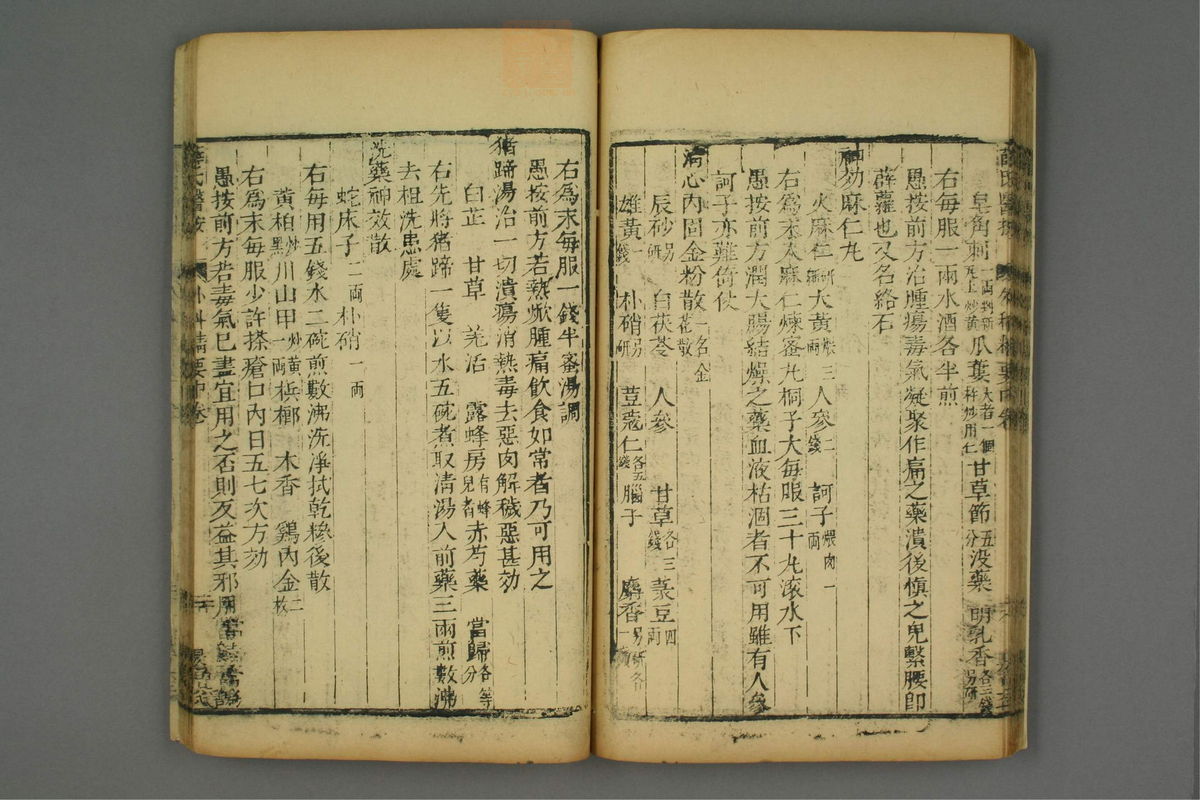 皂角刺一兩判新瓦上炒黃瓜蔞大者一個杵炒用仁甘草節五分没藥 明乳香各二錢另研
右每服一兩水酒各半煎
愚按前方治腫瘍毒氣凝聚作痛之藥潰後愼之鬼繫腰卽
薜蘿也又名絡石
神効麻仁丸
火麻仁研 大黃煨三兩人參二錢 訶子煨肉一兩
右爲末入麻仁煉蜜丸桐子大每服三十丸滚水下
愚按前方潤大腸結燥之藥血液枯涸者不可用雖有人參
訶子亦難倚仗
清心内固金粉散一名金花散
辰砂另研 白茯苓 人參 甘草各三錢菉豆四兩
雄黃一錢 朴硝另研 荳蔻仁各五錢腦子 麝香另研各一
右爲末每服一錢半蜜湯調
愚按前方若熱㷔腫痛飲食如常者乃可用之
猪蹄湯治一切潰瘍消熱毒去惡肉解穢惡甚効
白芷 甘草 羌活 露蜂房有蜂兒者赤芍藥 當歸各等分
右先將猪蹄一隻以水五碗煮取清湯入前藥三兩煎數沸
去粗洗患處
洗藥神效散
蛇床子二兩朴硝一兩
右每用五錢水二碗煎數沸洗淨拭乾糝後散
黃柏炒黑川山甲炒黃一兩檳榔 木香 鷄内金二枚
右爲末每服少許搽瘡口内日五七次方効
愚按前方若毒氣已盡宜用之否則反益其邪
薛氏醫按 外科精要中卷